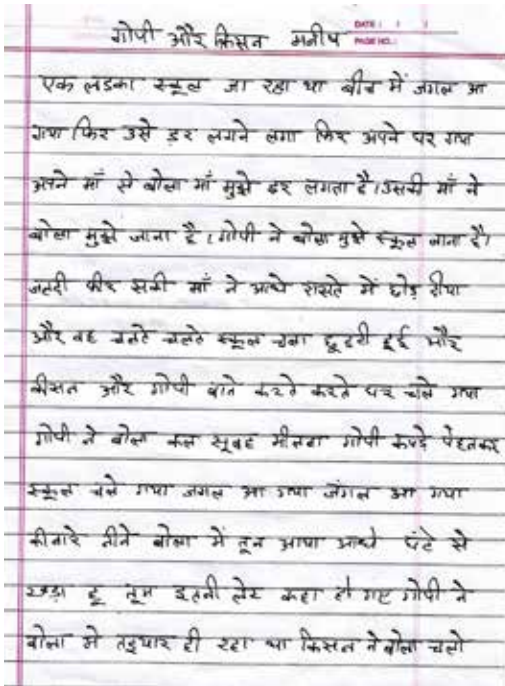 गोपी और किसन मनीष
DATE: / /
PAGE NO.:
एक लडका स्कूल जा रहा था बीच में जगल आ
गया फिर उसे डर लगने लगा फिर अपने घर गया
अपने माँ से बोला माँ मुझे डर लगता है। उसकी माँ ने
बोला मुझे जाना है। गोपी ने बोला मुझे स्कूल जाना है।
जलदी माँ ने आधे रासते में छोड दीया
और वह चलते चलते स्कूल चला छूटटी हुई और
कीसन और गोपी बाते करते करते घर चले गया
गोपी ने बोला कल सूबह मीलना गोपी कपडे पेहनकर
स्कूल चले गया जगल आ गया जंगल आ गया
कीनारे बोला में आया आधे घंटे से
खड़ा हू तूम इतनी लेट कहा हो गए गोपी ने
बोला मे तइयार हो रहा था किसन ने बोला चलो